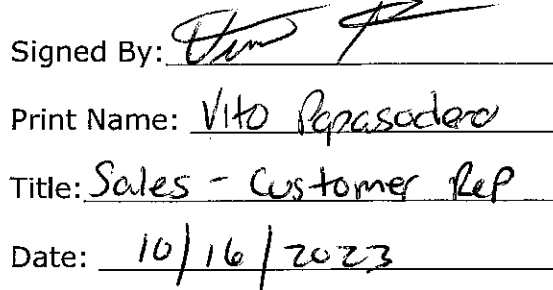 Signed By:
Print Name: Vito Papasodero
Title: Sales - Customer Rep
Date: 10/16/2023